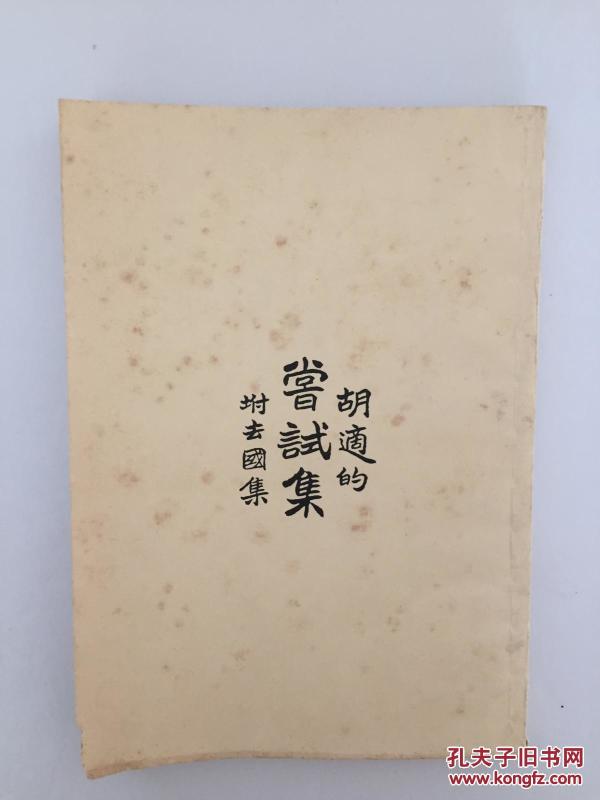 胡適的
嘗試集
坿去國集
孔夫子旧书网
www.kongfz.com